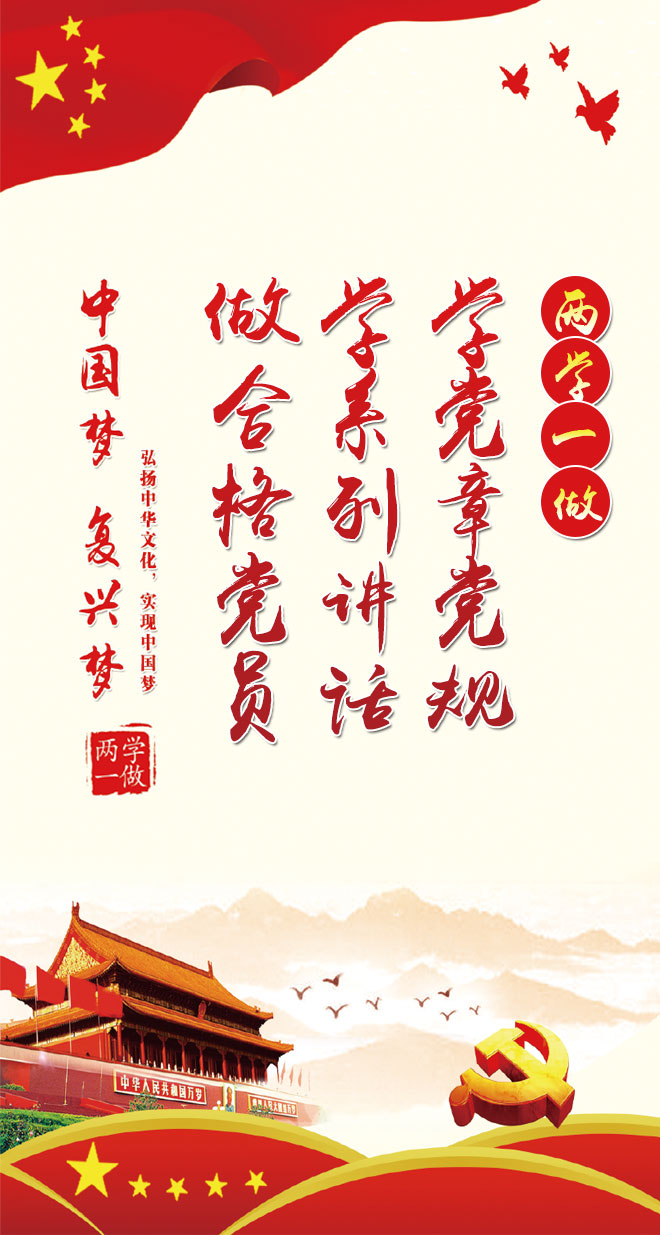 两学一做
学党章党规
学系列讲话
做合格党员
弘扬中华文化，实现中国梦
中国梦 复兴梦
两学
一做
中华人民共和国万岁
世界人民大团结万岁